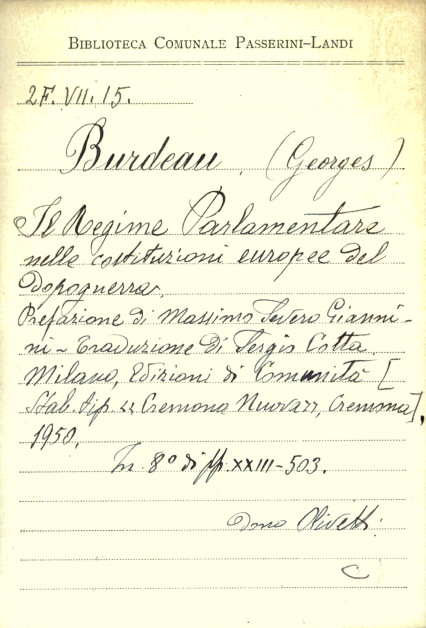 BIBLIOTECA COMUNALE PASSERINI-LANDI
2F.VII.15.
Burdeau, (Georges)
Il Regime Parlamentare
nelle costituzioni europee del
Dopoguerra.
Prefazione di Massimo Severo Gianni-
ni - Traduzione di Sergio Cotta
Milano, Edizioni di Comunità [
Stab. tip. << Cremona Nuova>>, Cremona],
1950.
In 8° di pp. XXIII-503.
Dono Olivetti.
C